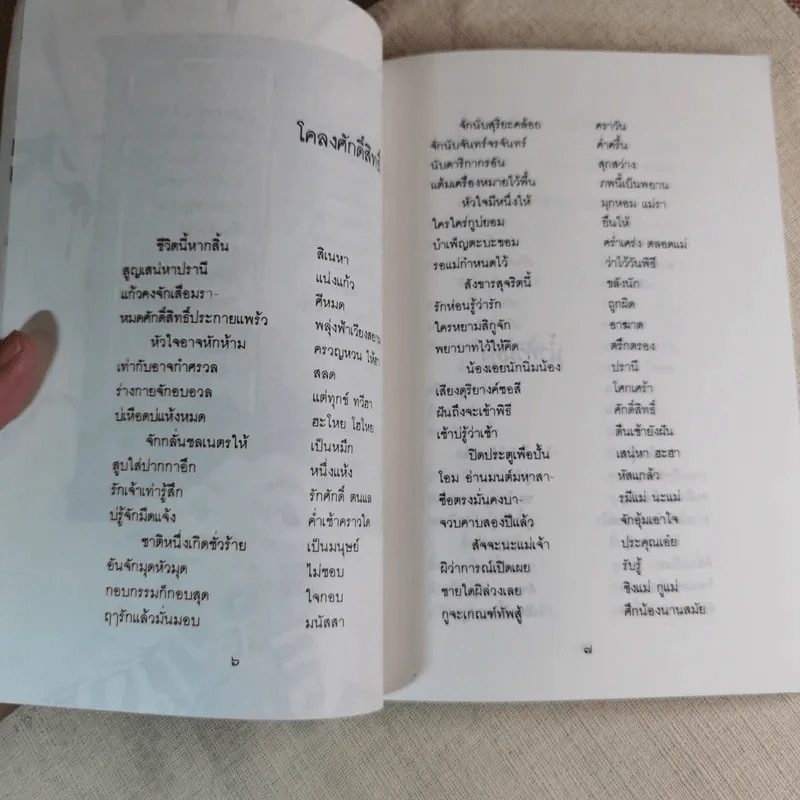 โคลงศักดิ์สิทธิ์
ชีวิตนี้หากสิ้น สิเนหา
สูญเสน่หาปรานี แน่งแก้ว
แก้วคงจักเสื่อมรา- ศีหมด
หมดศักดิ์สิทธิ์ประกายแพร้ว พลุ่งฟ้าเวียงสยาม
หัวใจอาจหักห้าม ครวญหวน ให้ฮา
เท่ากับอาจกำศรวล สลด
ร่างกายจักอบอวล แต่ทุกข์ ทวีฮา
บ่เหือดบ่แห้งหมด ฮะโหย โฮโหย
จักกลั่นชลเนตรให้ เป็นหมึก
สูบใส่ปากกาอีก หนึ่งแห้ง
รักเจ้าเท่ารู้สึก รักศักดิ์ ตนแล
บ่รู้จักมืดแจ้ง ค่ำเช้าคราวใด
ชาติหนึ่งเกิดชั่วร้าย เป็นมนุษย์
อันจักมุดหัวมุด ไม่ชอบ
กอบกรรมก็กอบสุด ใจกอบ
ฤๅรักแล้วมั่นมอบ มนัสสา
๖
จักนับสุริยะคล้อย คราวัน
จักนับจันทร์จรจันทร์ ค่ำครื้น
นับดาริกากรอัน สุกสว่าง
แต้มเครื่องหมายไว้พื้น ภพนี้เป็นพยาน
หัวใจมีหนึ่งให้ มุกหอม แม่รา
ใครใคร่กูบ่ยอม ยื่นให้
บำเพ็ญตะบะซอม คร่ำเคร่ง ตลอดแม่
รอแม่กำหนดไว้ ว่าไว้วันพิธี
สังขารสุจริตนี้ ขลังนัก
รักห่อนรู้ว่ารัก ถูกผิด
ใครหยามสิกูจัก อาฆาต
พยาบาทไว้ให้คิด ตรึกตรอง
น้องเอยนักนิ่มน้อง ปรานี
เสียงดุริยางค์ซอสี โศกเศร้า
ฝันถึงจะเข้าพิธี ศักดิ์สิทธิ์
เช้าบ่รู้ว่าเช้า ตื่นเช้ายังฝัน
ปิดประตูเพื่อปั้น เสน่หา ฮะฮา
โอม อ่านมนต์มหาสา- หัสแกล้ว
ซื่อตรงมั่นคงบา- รมีแม่ นะแม่
จวบคาบสองปีแล้ว จักอุ้มเอาใจ
สัจจะนะแม่เจ้า ประคุณเอ๋ย
ผิว่าการณ์เปิดเผย รับรู้
ชายใดผิล่วงเลย ชิงแม่ กูแม่
กูจะเกณฑ์ทัพสู้ ศึกน้องนานสมัย
๗